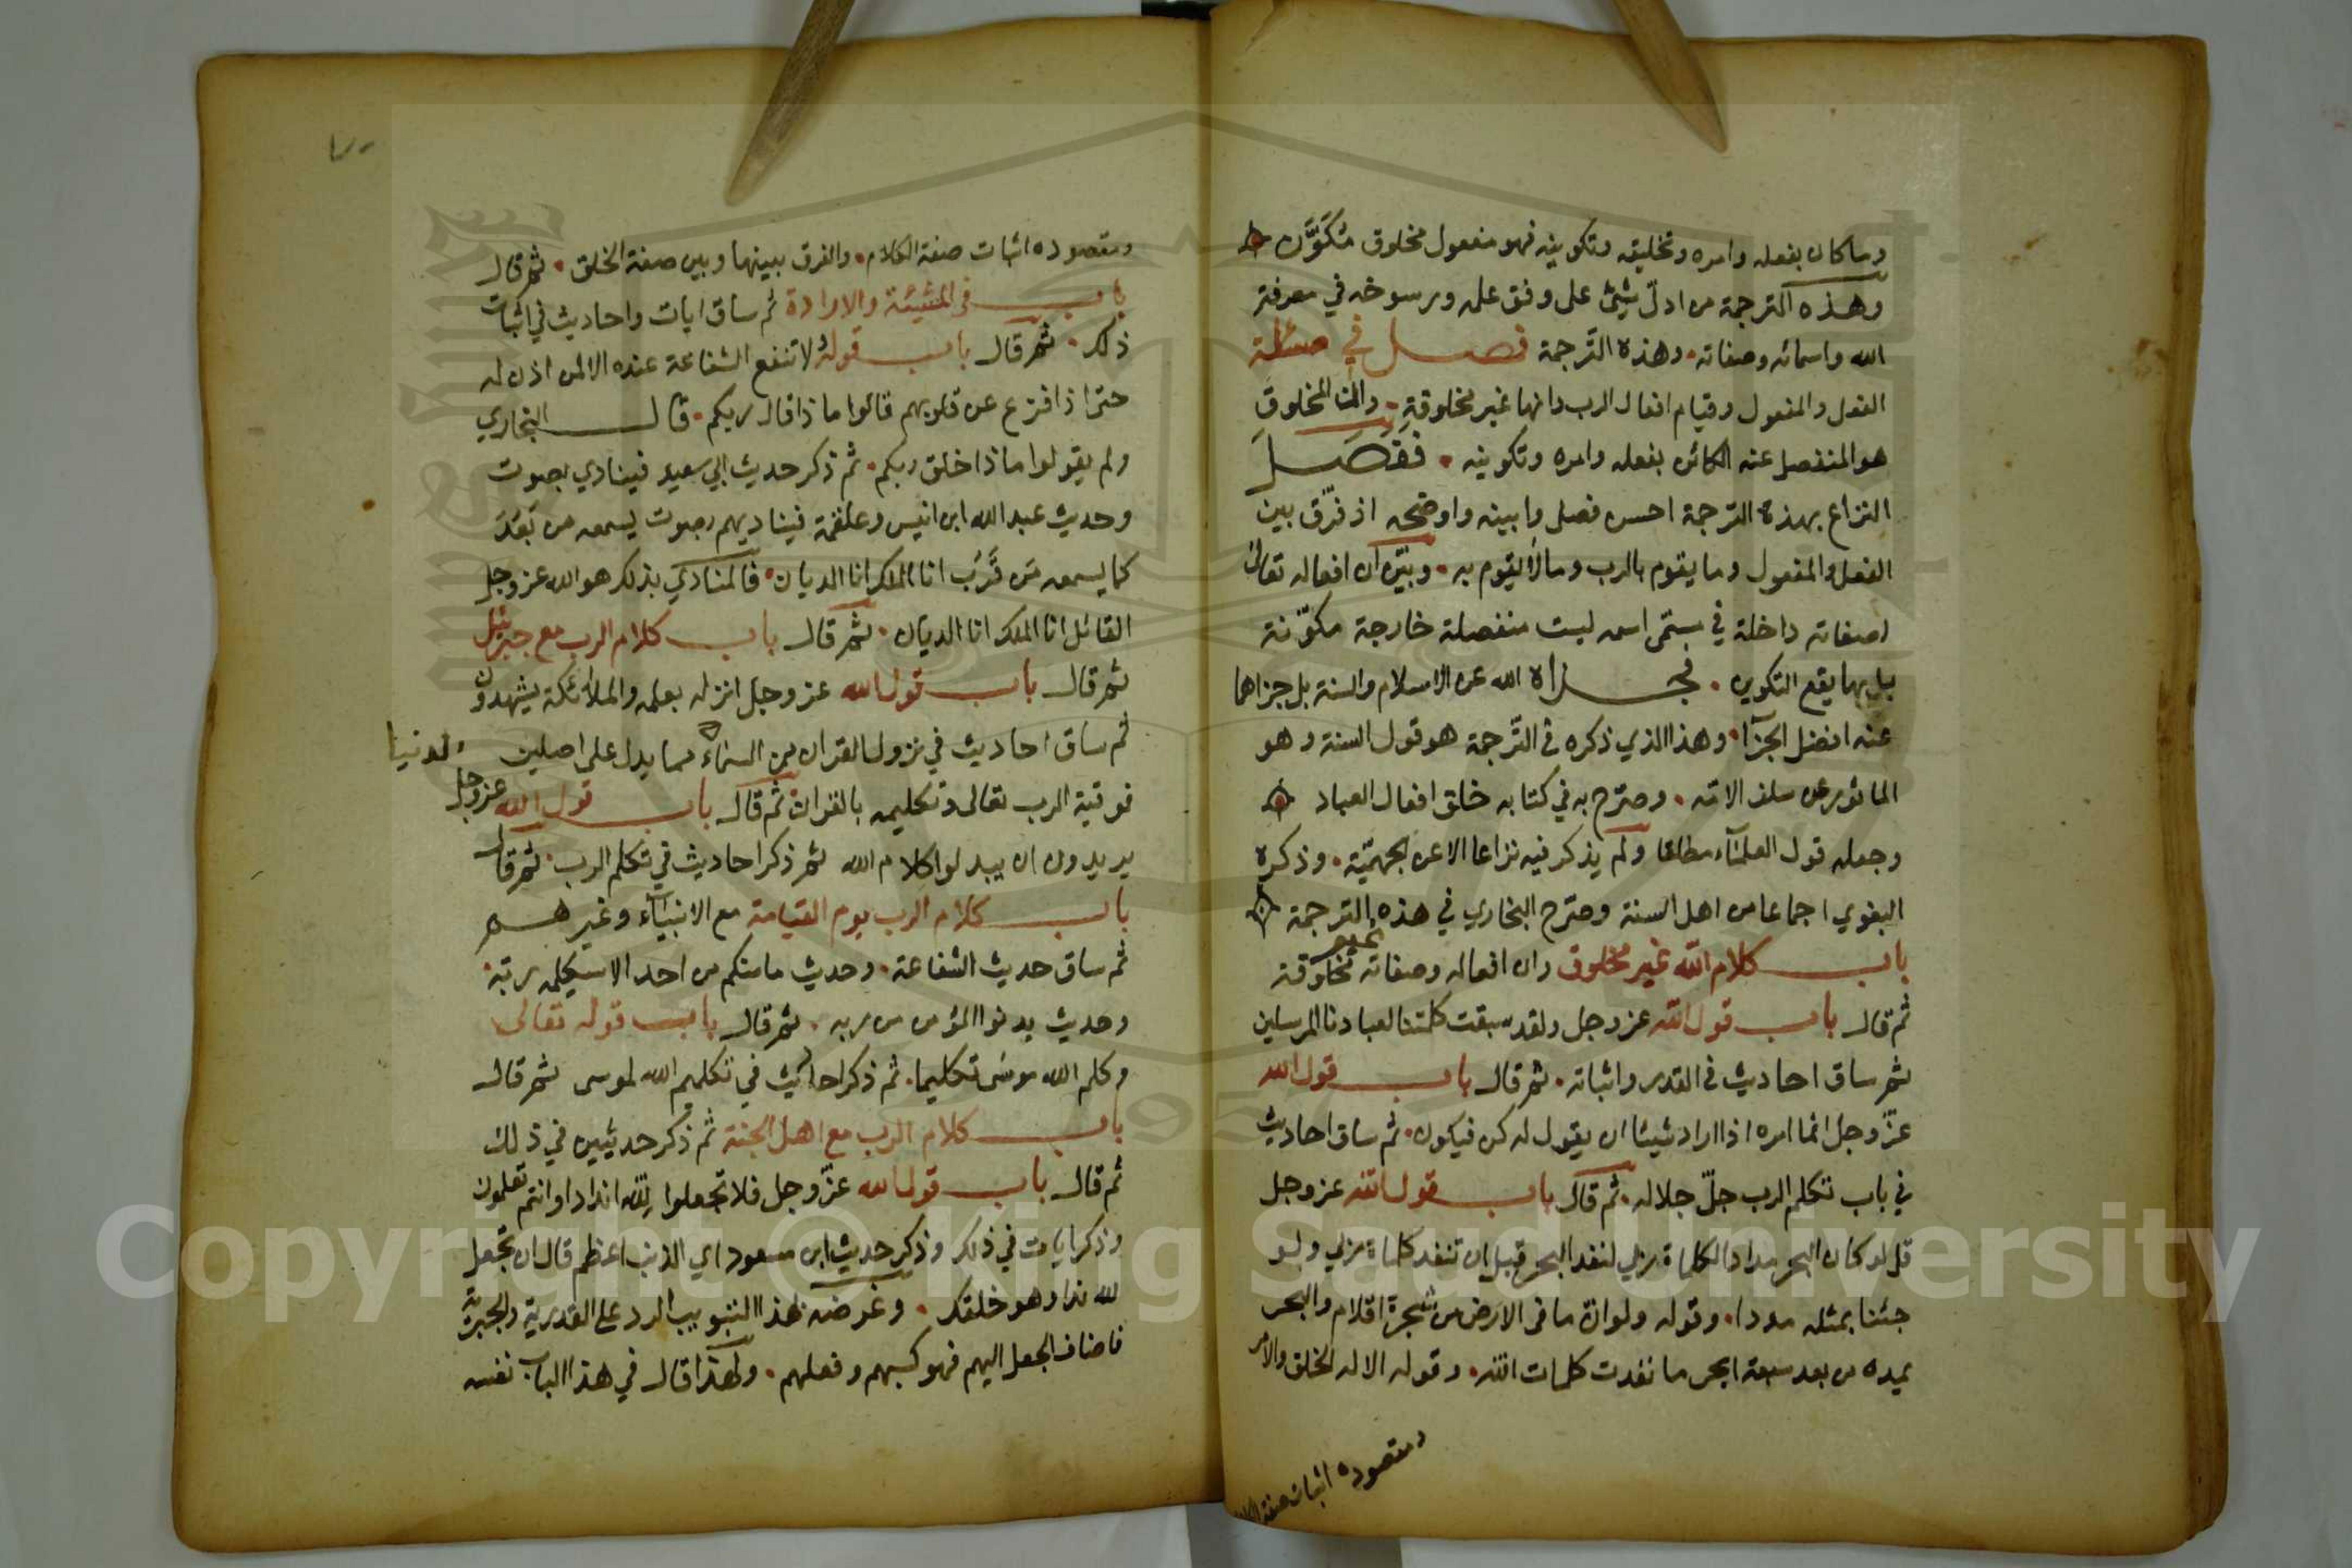 وما كان بفعله وامره وتخليقه وتكوينه فهو مفعول مخلوق مُكَوَّن
وهذه الترجمة من ادلّ شيئ على وفق علمه ورسوخه في معرفة
الله واسمائه وصفاته. وهذه الترجمة فصل في مسئلة
الفعل والمفعول وقيام افعال الرب وانها غير مخلوقةٍ. والمخلوق
هو المنفصل عنه الكائن بفعله وامره وتكوينه. ففصل
النزاع بهذه الترجمة احسن فصل وابينه واوضحه اذ فرّق بين
الفعل والمفعول وما يقوم بالرب وما لا يقوم به. وبيّن ان افعاله تعالى
لصفاته داخلة في مسمّى اسمه ليست منفصلة خارجة مكوّنة
بل بها يقع التكوين. فجزاه الله عن الاسلام والسنة بل جزاهما
عنه افضل الجزآ. وهذا الذي ذكره في الترجمة هو قول السنة وهو
المأثور عن سلف الامة. وصرّح به في كتابه خلق افعال العباد
وجعله قول العلمآء مطلقا ولم يذكر فيه نزاعا الا عن الجهميّة. وذكره
البغوي اجماعا من اهل السنة وصرّح البخاري في هذه الترجمة
باب كلام الله غير مخلوق وان افعاله وصفاته غير مخلوقة
ثم قال باب قول الله عز وجل ولقد سبقت كلمتنا لعبادنا المرسلين
ثم ساق احاديث في القدر واثباته. ثم قال باب قول الله
عزّ وجل انما امره اذا اراد شيئا ان يقول له كن فيكون. ثم ساق احاديث
في باب تكلم الرب جلّ جلاله. ثم قال باب قول الله عز وجل
قل لو كان البحر مدادا لكلماة ربي لنفد البحر قبل ان تنفد كلماة ربي ولو
جئنا بمثله مددا. وقوله ولو انّ ما في الارض من شجرة اقلام والبحر
يمده من بعد سبعة ابحر ما نفدت كلمات الله. وقوله الا له الخلق والامر
ومقصوده اثبات صفة الكلام
ومقصوده اثبات صفة الكلام. والفرق بينها وبين صفة الخلق. ثم قال
باب في المشيئة والارادة ثم ساق ايات واحاديث في اثبات
ذلك. ثم قال باب قوله ولا تنفع الشفاعة عنده الا لمن اذن له
حتى اذا فزع عن قلوبهم قالوا ماذا قال ربكم. قال البخاري
ولم يقولوا ماذا خلق ربكم. ثم ذكر حديث ابي سعيد فينادي بصوت
وحديث عبد الله ابن انيس وعلقمة فيناديهم بصوت يسمعه من بَعُدَ
كما يسمعه من قَرُب انا الملك انا الديان. فالمنادي بذلك هو الله عز وجل
القائل انا الملك انا الديان. ثم قال باب كلام الرب مع جبرئيل
ثم قال باب قول الله عز وجل انزله بعلمه والملائكة يشهدون
ثم ساق احاديث في نزول القران من السماء مما يدل على اصلين
الدنيا
فوقية الرب تعالى وتكليمه بالقران ثم قال باب قول الله عز وجل
يريدون ان يبدلوا كلام الله ثم ذكر احاديث في تكلم الرب. ثم قال
باب كلام الرب يوم القيامة مع الانبيآء وغيرهم
ثم ساق حديث الشفاعة. وحديث ما منكم من احد الا سيكلمه ربه.
وحديث يدنوا المؤمن من ربه. ثم قال باب قوله تعالى
وكلم الله موسى تكليما. ثم ذكر احاديث في تكليم الله لموسى ثم قال
باب كلام الرب مع اهل الجنة ثم ذكر حديثين في ذلك
ثم قال باب قول الله عزّ وجل فلا تجعلوا لله اندادا وانتم تعلمون
وذكر ايات في ذلك وذكر حديث ابن مسعود اي الذنب اعظم قال ان تجعل
لله ندا وهو خلقك. وغرضه بهذا التبويب الرد على القدرية والجبرية
فاضاف الجعل اليهم فهو كسبهم وفعلهم. ولهذا قال في هذا الباب نفسه
Copyright © King Saud University